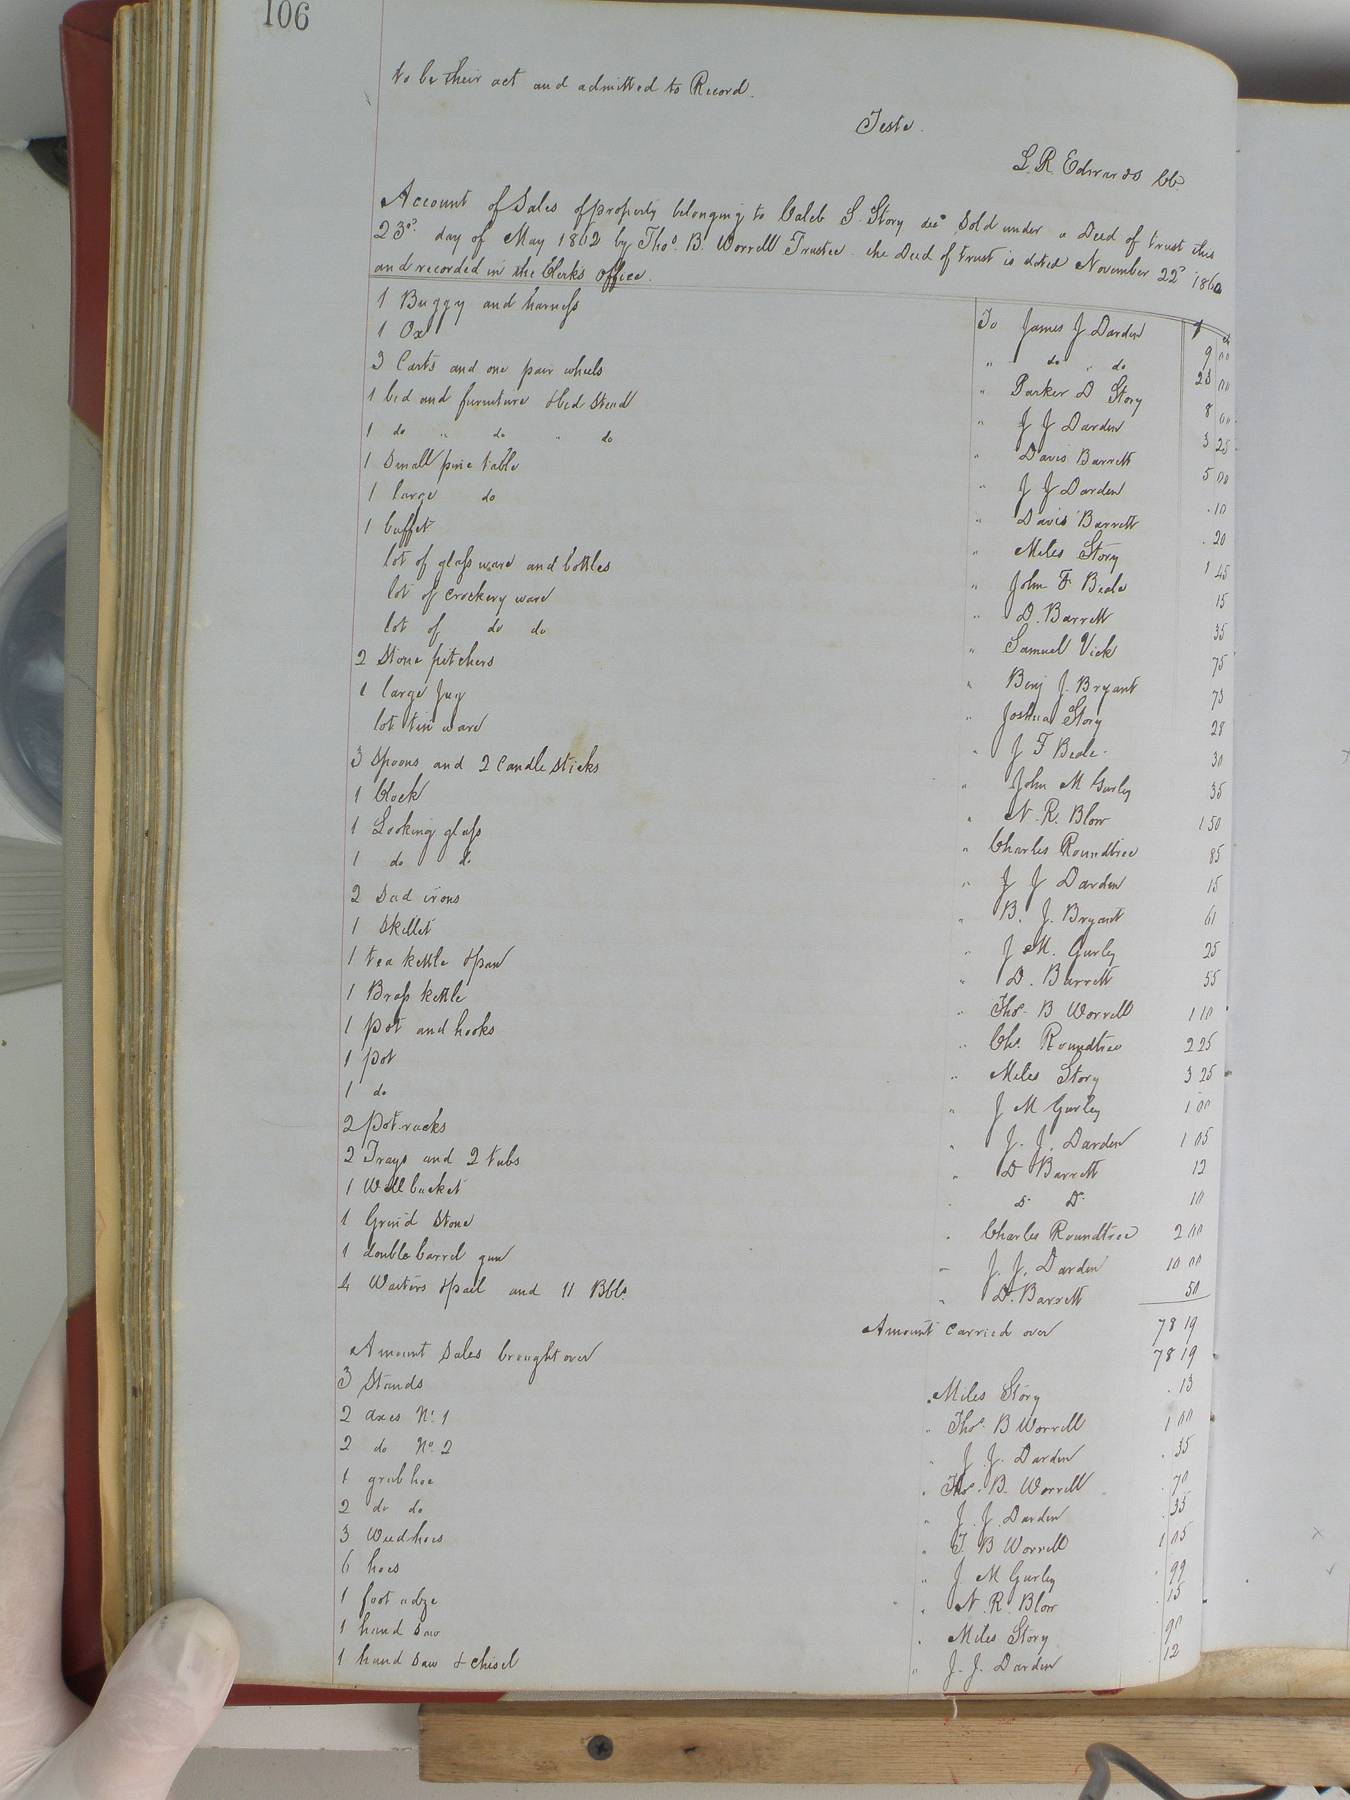 106
to be their act and admitted to Record.
Teste.
L. R. Edwards Cc.
Account of Sales of property belonging to Caleb S. Story decd Sold under a Deed of trust this
23d day of May 1862 by Thos. B. Worrell Trustee. the Deed of trust is dated November 22d 1860
and recorded in the Clerks Office.
1 Buggy and harness To James J Darden $ 9 00
1 Ox " do " do 23 00
3 Carts and one pair wheels " Parker D Story 8 00
1 bed and furniture & bed Stead " J J Darden 3 25
1 do " do " do " Davis Barrett 5 00
1 Small pine table " J J Darden .10
1 large do " Davis Barrett .20
1 buffet " Miles Story 1 45
lot of glass ware and bottles " John F Beale 15
lot of crockery ware " D. Barrett 35
lot of do do " Samuel Vick 75
2 Stone pitchers " Benj J. Bryant 73
1 large Jug " Joshua Story 28
lot tin ware " J F Beale 30
3 Spoons and 2 Candle Sticks " John M Gurley 35
1 Clock " N. R. Blow 1 50
1 Looking glass " Charles Roundtree 85
1 do do " J J Darden 15
2 Sad irons " B. J. Bryant 61
1 Skillet " J. M. Gurley 25
1 tea kettle & pan " D. Barrett 55
1 Brass kettle " Thos. B Worrell 1 10
1 pot and hooks " Chs. Roundtree 2 25
1 pot " Miles Story 3 25
1 do " J M Gurley 1 00
2 Pot-racks " J. J. Darden 1 05
2 Trays and 2 tubs " D Barrett 12
1 Well bucket " D. D. 10
1 Grind Stone " Charles Roundtree 2 00
1 double barrel gun " J. J. Darden 10 00
4 Waiters & pail and 11 Bbls. " D. Barrett 50
Amount carried over 78 19
Amount Sales brought over 78 19
3 Stands " Miles Story .13
2 axes No. 1 " Thos. B Worrell 1 00
2 do No. 2 " J. J. Darden .35
1 grub hoe " Thos. B. Worrell .70
2 do do " J. J. Darden .35
3 Weed hoes " T. B Worrell 1 05
6 hoes " J M Gurley .99
1 foot adze " N. R. Blow .15
1 hand Saw " Miles Story 90
1 hand Saw & chisel " J. J. Darden 12